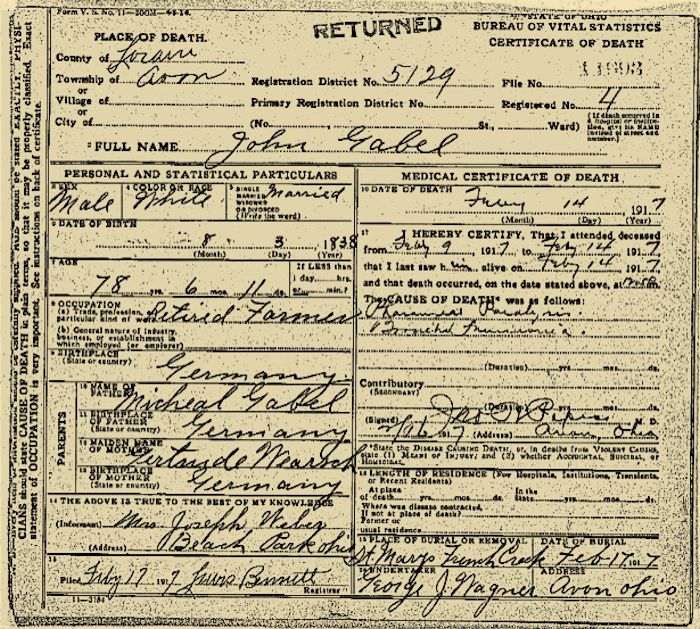 Form V. S. No. 11—200M
RETURNED
STATE OF OHIO
BUREAU OF VITAL STATISTICS
CERTIFICATE OF DEATH
PLACE OF DEATH.
County of Lorain
Township of Avon
or
Village of
or
City of
Registration District No. 5129
File No.
Primary Registration District No.
Registered No. 4
(No. St., Ward)
(If death occurred in a hospital or institution, give its NAME instead of street and number.)
2 FULL NAME John Gabel
PERSONAL AND STATISTICAL PARTICULARS
3 SEX Male
4 COLOR OR RACE White
5 SINGLE MARRIED WIDOWED OR DIVORCED (Write the word) Married
6 DATE OF BIRTH
8 3 1838
(Month) (Day) (Year)
7 AGE
78 yrs. 6 mos. 11 ds.
If LESS than 1 day, hrs. or min.?
8 OCCUPATION
(a) Trade, profession, or particular kind of work Retired Farmer
(b) General nature of industry, business, or establishment in which employed (or employer)
9 BIRTHPLACE
(State or country) Germany
PARENTS
10 NAME OF FATHER Micheal Gabel
11 BIRTHPLACE OF FATHER
(State or country) Germany
12 MAIDEN NAME OF MOTHER Gertrude
13 BIRTHPLACE OF MOTHER
(State or country) Germany
14 THE ABOVE IS TRUE TO THE BEST OF MY KNOWLEDGE
(Informant) Mrs. Joseph Weber
(Address) Beach Park Ohio
15
Filed Feby 17 1917 Bennett
Registrar
11—3184
MEDICAL CERTIFICATE OF DEATH
16 DATE OF DEATH
Feby 14 1917
(Month) (Day) (Year)
17 I HEREBY CERTIFY, That I attended deceased
from Feby 9 1917, to Feby 14 1917
that I last saw him alive on Feby 14 1917,
and that death occurred, on the date stated above, at
The CAUSE OF DEATH* was as follows:
Paralysis
(Duration) yrs. mos. ds.
Contributory
(SECONDARY)
(Duration) yrs. mos. ds.
(Signed) M. D.
2/16 1917 (Address) Avon, Ohio
*State the DISEASE CAUSING DEATH, or, in deaths from VIOLENT CAUSES, state (1) MEANS OF INJURY; and (2) whether ACCIDENTAL, SUICIDAL, or HOMICIDAL.
18 LENGTH OF RESIDENCE (For Hospitals, Institutions, Transients, or Recent Residents)
At place of death yrs. mos. ds. In the State yrs. mos. ds.
Where was disease contracted, If not at place of death?
Former or usual residence
19 PLACE OF BURIAL OR REMOVAL DATE OF BURIAL
St. Marys French Creek Feb-17, 1917
20 UNDERTAKER ADDRESS
George J. Wagner Avon Ohio
CIANS should state CAUSE OF DEATH in plain terms, so that it may be properly classified. Exact
statement of OCCUPATION is very important. See instructions on back of certificate.